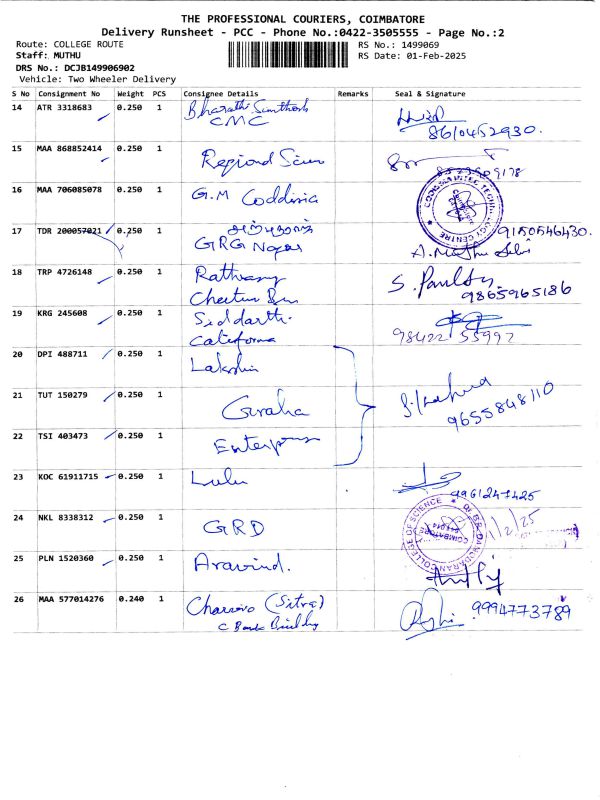 THE PROFESSIONAL COURIERS, COIMBATORE
Delivery Runsheet - PCC - Phone No.:0422-3505555 - Page No.:2
Route: COLLEGE ROUTE
RS No.: 1499069
Staff: MUTHU
RS Date: 01-Feb-2025
DRS No.: DCJB149906902
Vehicle: Two Wheeler Delivery
S No Consignment No Weight PCS Consignee Details Remarks Seal & Signature
14 ATR 3318683 0.250 1 Bharathi
CMC
8610452930.
15 MAA 868852414 0.250 1 Regional
16 MAA 706085078 0.250 1 G.M
17 TDR 200057021 0.250 1
GRG Nagar
9150546430.
18 TRP 4726148 0.250 1 Rathnasamy
S.
9865965186
19 KRG 245608 0.250 1 Siddarth
98422 55997
20 DPI 488711 0.250 1 Lakshmi
21 TUT 150279 0.250 1
9655848110
22 TSI 403473 0.250 1 Enterprises
23 KOC 61911715 0.250 1 Lulu
9961247425
24 NKL 8338312 0.250 1 GRD
COLLEGE OF SCIENCE
COIMBATORE
1/2/25
25 PLN 1520360 0.250 1 Aravind.
26 MAA 577014276 0.240 1 (Sitra)
Building
9994773789